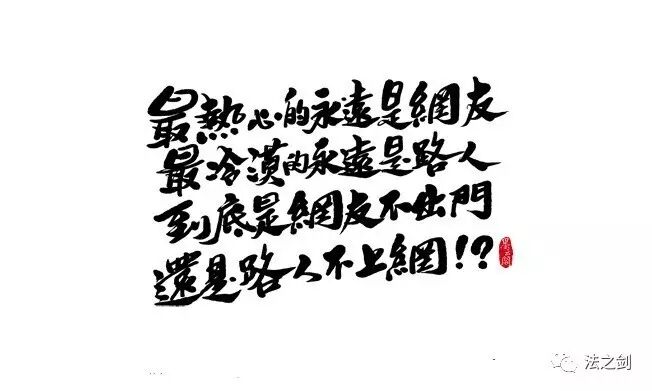 最熱心的永遠是網友
最冷漠的永遠是路人
到底是網友不出門
還是路人不上網!?
法之剑